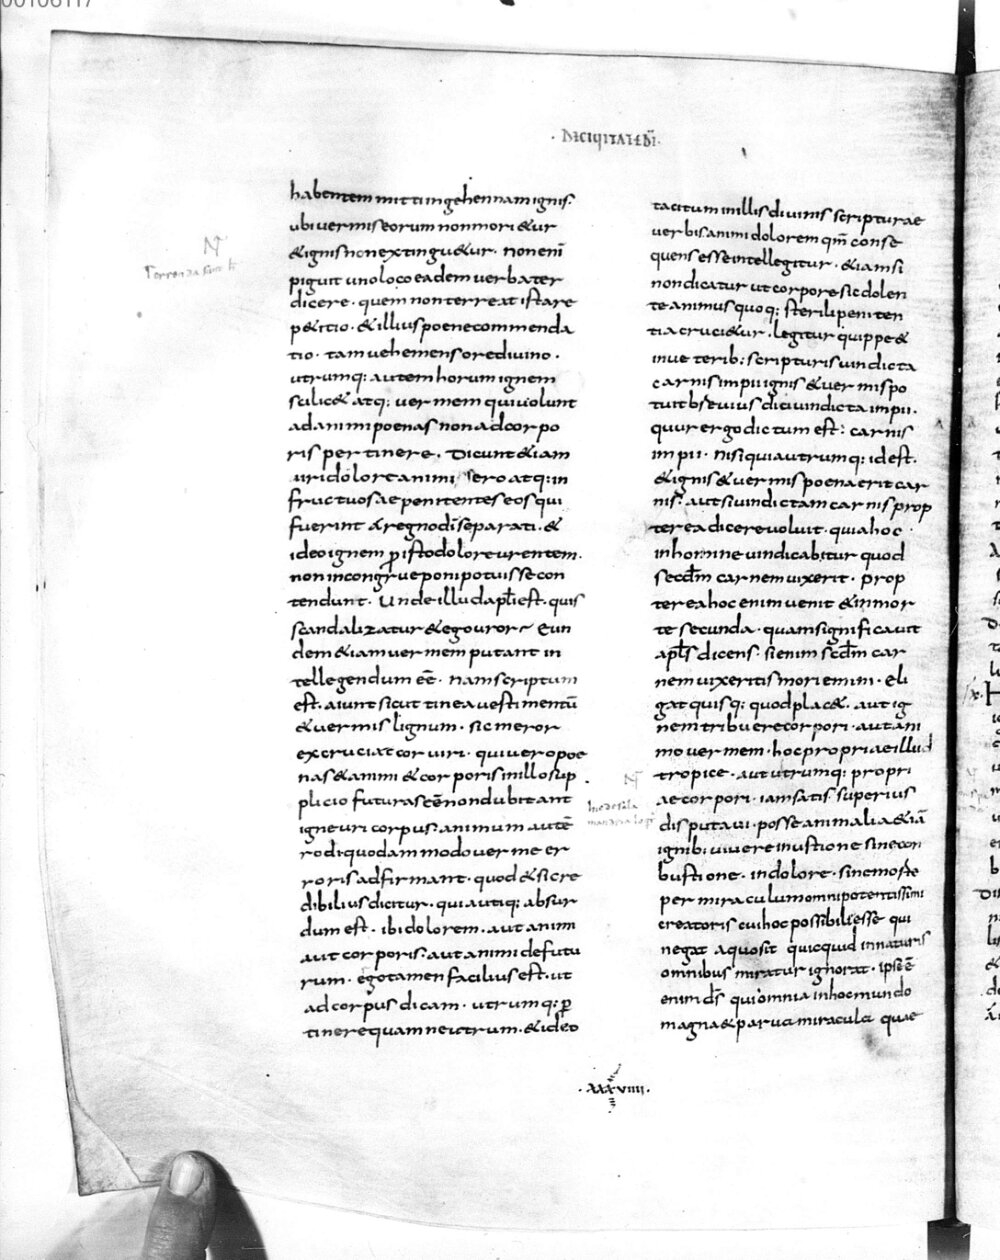 00106117
· DECIUITATE DI ·
habentem mitti ingehennam ignis:
ubi uermis eorum non morietur
& ignis non extinguetur. non eni
piguit uno loco eadem uerba ter
dicere. quem non terreat istare
p&itio. & illius poene commenda
tio. tam uehemens ore diuino.
utrumq: autem horum ignem
scilic& atq: uermem qui uolunt
ad animi poenas non ad corpo
ris pertinere. Dicunt etiam
uri dolore animi sero atq: in
fructuosae penitentes eos qui
fuerint a regno di separati. &
ideo ignem p isto dolore urentem.
non incongrue poni potuisse con
tendunt. Unde illud apli est. quis
scandalizatur & ego uror. Eun
dem & iam uermem putant in
tellegendum ee. nam scriptum
est. aiunt sicut tinea uestimentu
& uermis lignum. sic meror
excruciat cor uiri. qui uero poe
nas & animi & corporis in illo sup
plicio futuras ee non dubitant
igne uri corpus. animum aute
rodi quodammodo uerme er
roris adfirmant. quod & si cre
dibilius dicitur. quia utiq: absur
dum est. ibi dolorem. aut animi
aut corporis. aut animi defutu
rum. ego tamen facilius est. ut
ad corpus dicam. utrumq: p
tinere quam neutrum. & ideo
tacitum in illis diuinis scripturae
uerbis animi dolorem qm conse
quens esse intellegitur. & iam si
non dicatur ut corpore sic dolen
te animus quoq: sterili peniten
tia cruci&ur. legitur quippe &
in ueterib: scripturis uindicta
carnis impii ignis & uermis po
tuit breuius dici uindicta impii.
quur ergo dictum est: carnis
impii. nisi quia utrumq: id est.
& ignis & uermis poena erit car
nis. aut si uindictam carnis prop
terea dicere uoluit. quia hoc
in homine uindicabitur quod
secdm carnem uixerit. prop
terea hoc enim uenit & in mor
te secunda. quam significauit
apls dicens. si enim scdm car
nem uixeritis moriemini. eli
gat quisq: quod plac&. aut ig
nem tribuere corpori. aut ani
mo uermem. hoc propriae illud
tropice. aut utrumq: propri
ae corpori. iam satis superius
disputaui. posse animalia & ia
ignib: uiuere in ustione sine con
bustione. in dolore. sine morte
per miraculum omnipotentissimi
creatoris cui hoc possibile esse qui
negat a quo sit quicquid in naturis
omnibus miratur ignorat. ipse e
enim ds qui omnia in hoc mundo
magna & parua miracula quae
· XXXVIIII ·